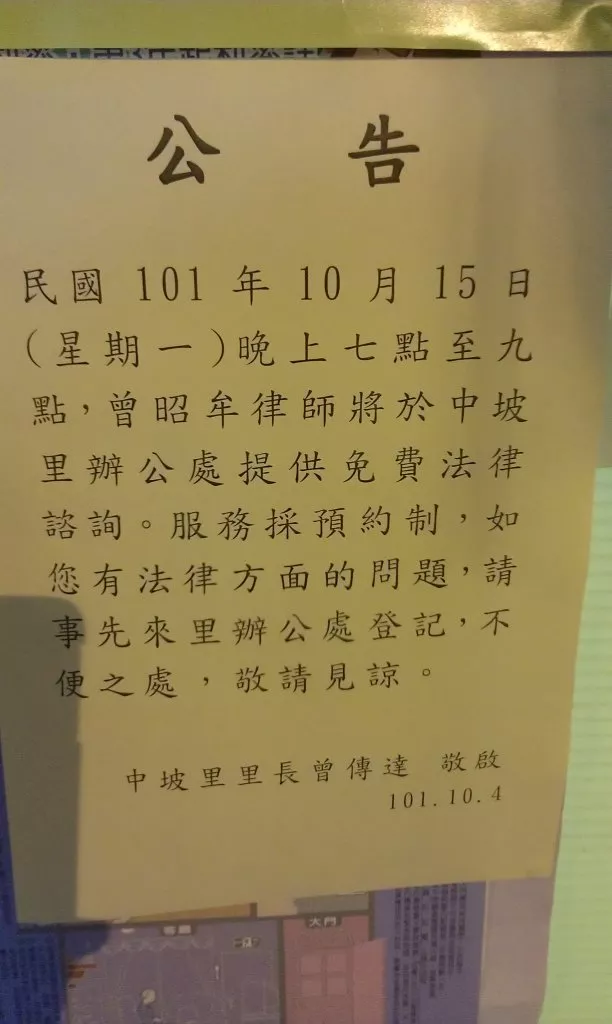 公告
民國 101 年 10 月 15 日
(星期一)晚上七點至九
點，曾昭牟律師將於中坡
里辦公處提供免費法律
諮詢。服務採預約制，如
您有法律方面的問題，請
事先來里辦公處登記，不
便之處，敬請見諒。
中坡里里長曾傳達 敬啟
101.10.4
客廳
大門